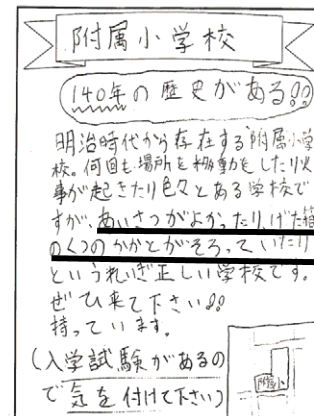 附属小学校
140年の歴史がある!!
明治時代から存在する附属小学
校。何回も場所を移動をしたり火
事が起きたり色々とある学校で
すが、あいさつがよかったり、げた箱
のくつのかがとがそろっていたり
というれいぎ正しい学校です。
ぜひ来て下さい!!
持っています。
(入学試験があるの
で気を付けて下さい)
附属小